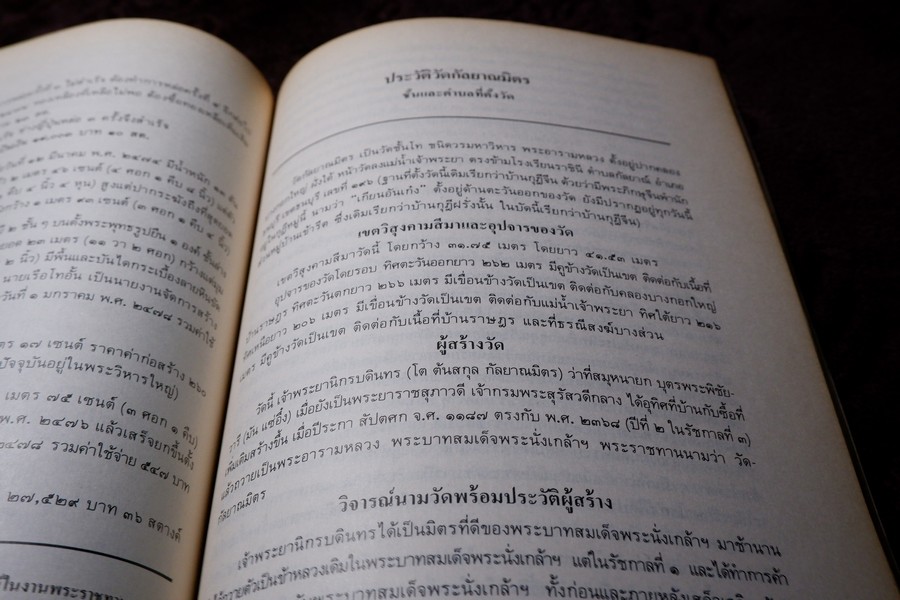 บาท ๑๐ สต.
วันที่ ๑๒ มีนาคม พ.ศ. ๒๔๗๔ มีน้ำหนัก
เมตร ๔๖ เซนต์ (๔ ศอก ๑ คืบ ๔ นิ้ว)
คืบ ๔ นิ้ว
กว้าง ๑ เมตร ๙๓ เซนต์ (๓ ศอก ๑ คืบ
๒ ชั้นๆ บนตั้งพระพุทธรูปยืน ๑ องค์
๒๓ เมตร (๑๑ วา ๒ ศอก)
๒ นิ้ว) มีพื้นและบันไดกระเบื้องลายหินขัด
นายเรือไทอั้น เป็นนายงานจัดการสร้าง
วันที่ ๑ มกราคม พ.ศ. ๒๔๗๘ รวมค่าใช้
๑๗ เซนต์ ราคาค่าก่อสร้าง ๒๖๐
ปัจจุบันอยู่ในพระวิหารใหญ่)
เมตร ๗๕ เซนต์ (๓ ศอก ๑ คืบ)
พ.ศ. ๒๔๗๖ แล้วเสร็จยกขึ้นตั้ง
๒๔๗๘ รวมค่าใช้จ่าย ๕๔๗ บาท
๒๗,๕๒๙ บาท ๓๖ สตางค์
ประวัติวัดกัลยาณมิตร
ชั้นและตำบลที่ตั้งวัด
วัดกัลยาณมิตร เป็นวัดชั้นโท ชนิดวรมหาวิหาร พระอารามหลวง ตั้งอยู่ปากคลอง
บางกอกใหญ่ ฝั่งใต้ หน้าวัดลงแม่น้ำเจ้าพระยา ตรงข้ามโรงเรียนราชินี ตำบลกัลยาณ์ อำเภอ
ธนบุรี เขตธนบุรี เลขที่ ๑๙๖ (ฐานที่ตั้งวัดนี้เดิมเรียกว่าบ้านกุฎีจีน ด้วยว่ามีพระภิกษุจีนพำนัก
อยู่กุฎีหมู่นี้ นามว่า “เกียนอันเก๋ง” ตั้งอยู่ด้านตะวันออกของวัด ยังมีปรากฏอยู่ทุกวันนี้
ส่วนหมู่บ้านเข้ารีต ซึ่งเดิมเรียกว่าบ้านกุฎีฝรั่งนั้น ในบัดนี้เรียกว่าบ้านกุฎีจีน)
เขตวิสุงคามสีมาและอุปจารของวัด
เขตวิสุงคามสีมาวัดนี้ โดยกว้าง ๓๑.๗๕ เมตร โดยยาว ๔๑.๕๓ เมตร
อุปจารของวัดโดยรอบ ทิศตะวันออกยาว ๒๖๒ เมตร มีคูข้างวัดเป็นเขต ติดต่อกับเนื้อที่
บ้านราษฎร ทิศตะวันตกยาว ๒๖๖ เมตร มีเขื่อนข้างวัดเป็นเขต ติดต่อกับคลองบางกอกใหญ่
ทิศเหนือยาว ๒๐๖ เมตร มีเขื่อนข้างวัดเป็นเขต ติดต่อกับแม่น้ำเจ้าพระยา ทิศใต้ยาว ๒๑๖
เมตร มีคูข้างวัดเป็นเขต ติดต่อกับเนื้อที่บ้านราษฎร และที่ธรณีสงฆ์บางส่วน
ผู้สร้างวัด
วัดนี้ เจ้าพระยานิกรบดินทร (โต ต้นสกุล กัลยาณมิตร) ว่าที่สมุหนายก บุตรพระพิชัย-
วารี (มัน แซ่อึ๋ง) เมื่อยังเป็นพระยาราชสุภาวดี เจ้ากรมพระสุรัสวดีกลาง ได้อุทิศที่บ้านกับซื้อที่
เพิ่มเติมสร้างขึ้น เมื่อปีระกา สัปตศก จ.ศ. ๑๑๘๗ ตรงกับ พ.ศ. ๒๓๖๘ (ปีที่ ๒ ในรัชกาลที่ ๓)
แล้วถวายเป็นพระอารามหลวง พระบาทสมเด็จพระนั่งเกล้าฯ พระราชทานนามว่า วัด-
กัลยาณมิตร
วิจารณ์นามวัดพร้อมประวัติผู้สร้าง
เจ้าพระยานิกรบดินทรได้เป็นมิตรที่ดีของพระบาทสมเด็จพระนั่งเกล้าฯ มาช้านาน
ได้ถวายตัวเป็นข้าหลวงเดิมในพระบาทสมเด็จพระนั่งเกล้าฯ แต่ในรัชกาลที่ ๑ และได้ทำการค้า
พระบาทสมเด็จพระนั่งเกล้าฯ ทั้งก่อนและภายหลังเสด็จ